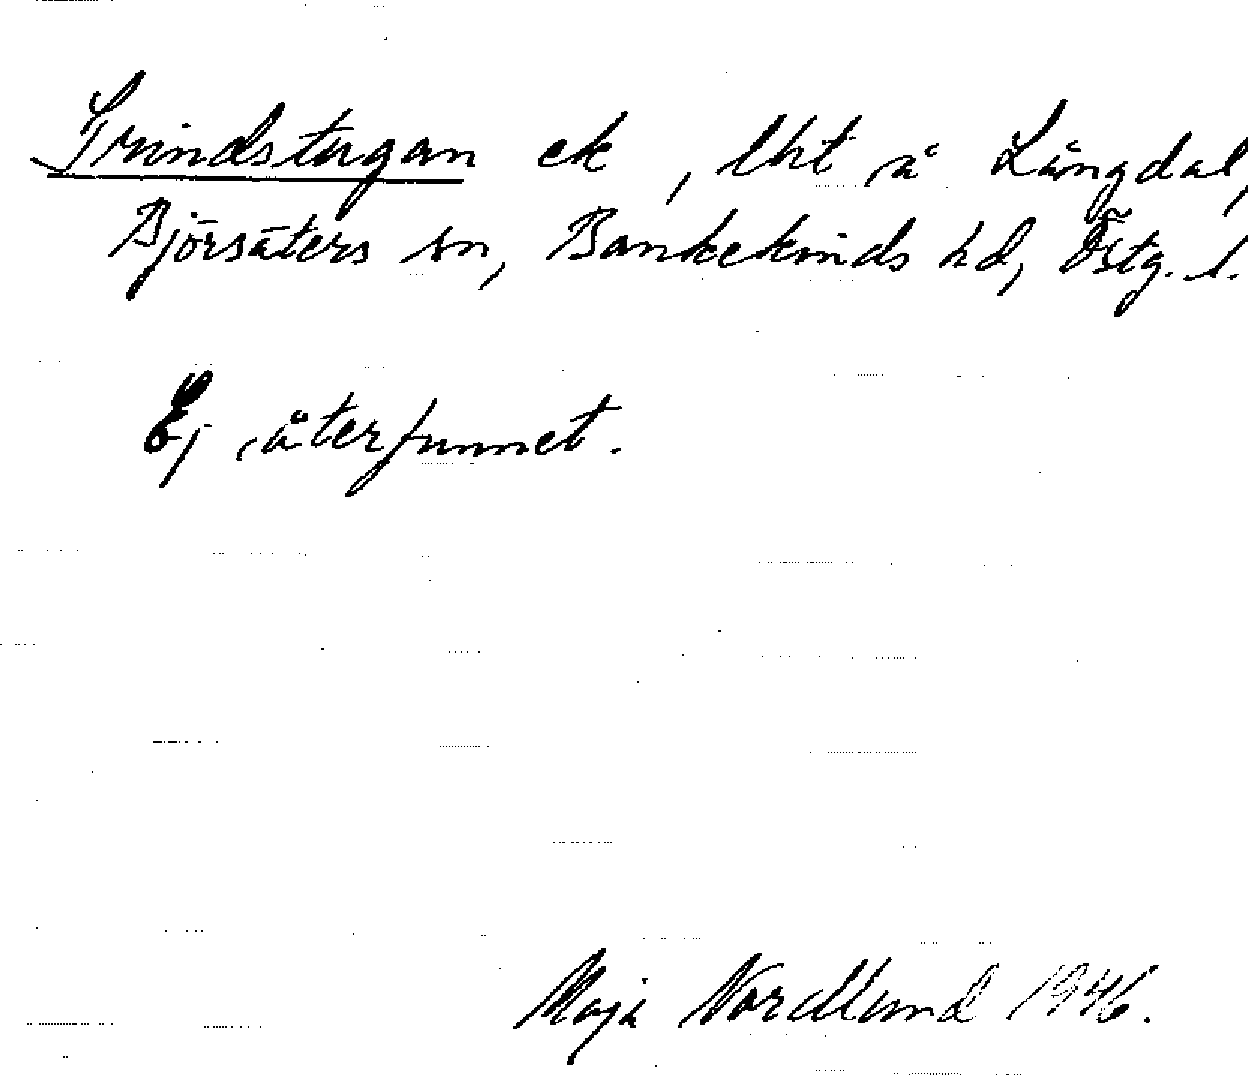 Grindstugan ek, lht å Långdal,
Björsäters sn, Bankekinds hd, Östg. l.
Ej återfunnet.
Maja Nordlund 1946.